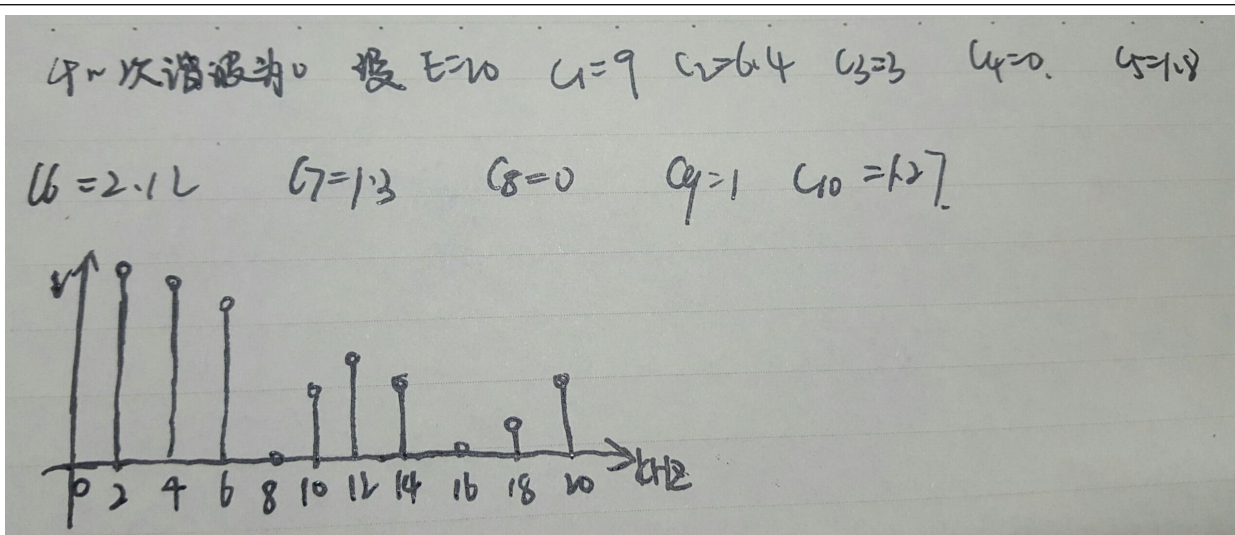 4n次谐波为0 设 E=20 C1=9 C2=6.4 C3=3 C4=0. C5=1.8
C6=2.12 C7=1.3 C8=0 C9=1 C10=1.27.
V
0 2 4 6 8 10 12 14 16 18 20 kHz